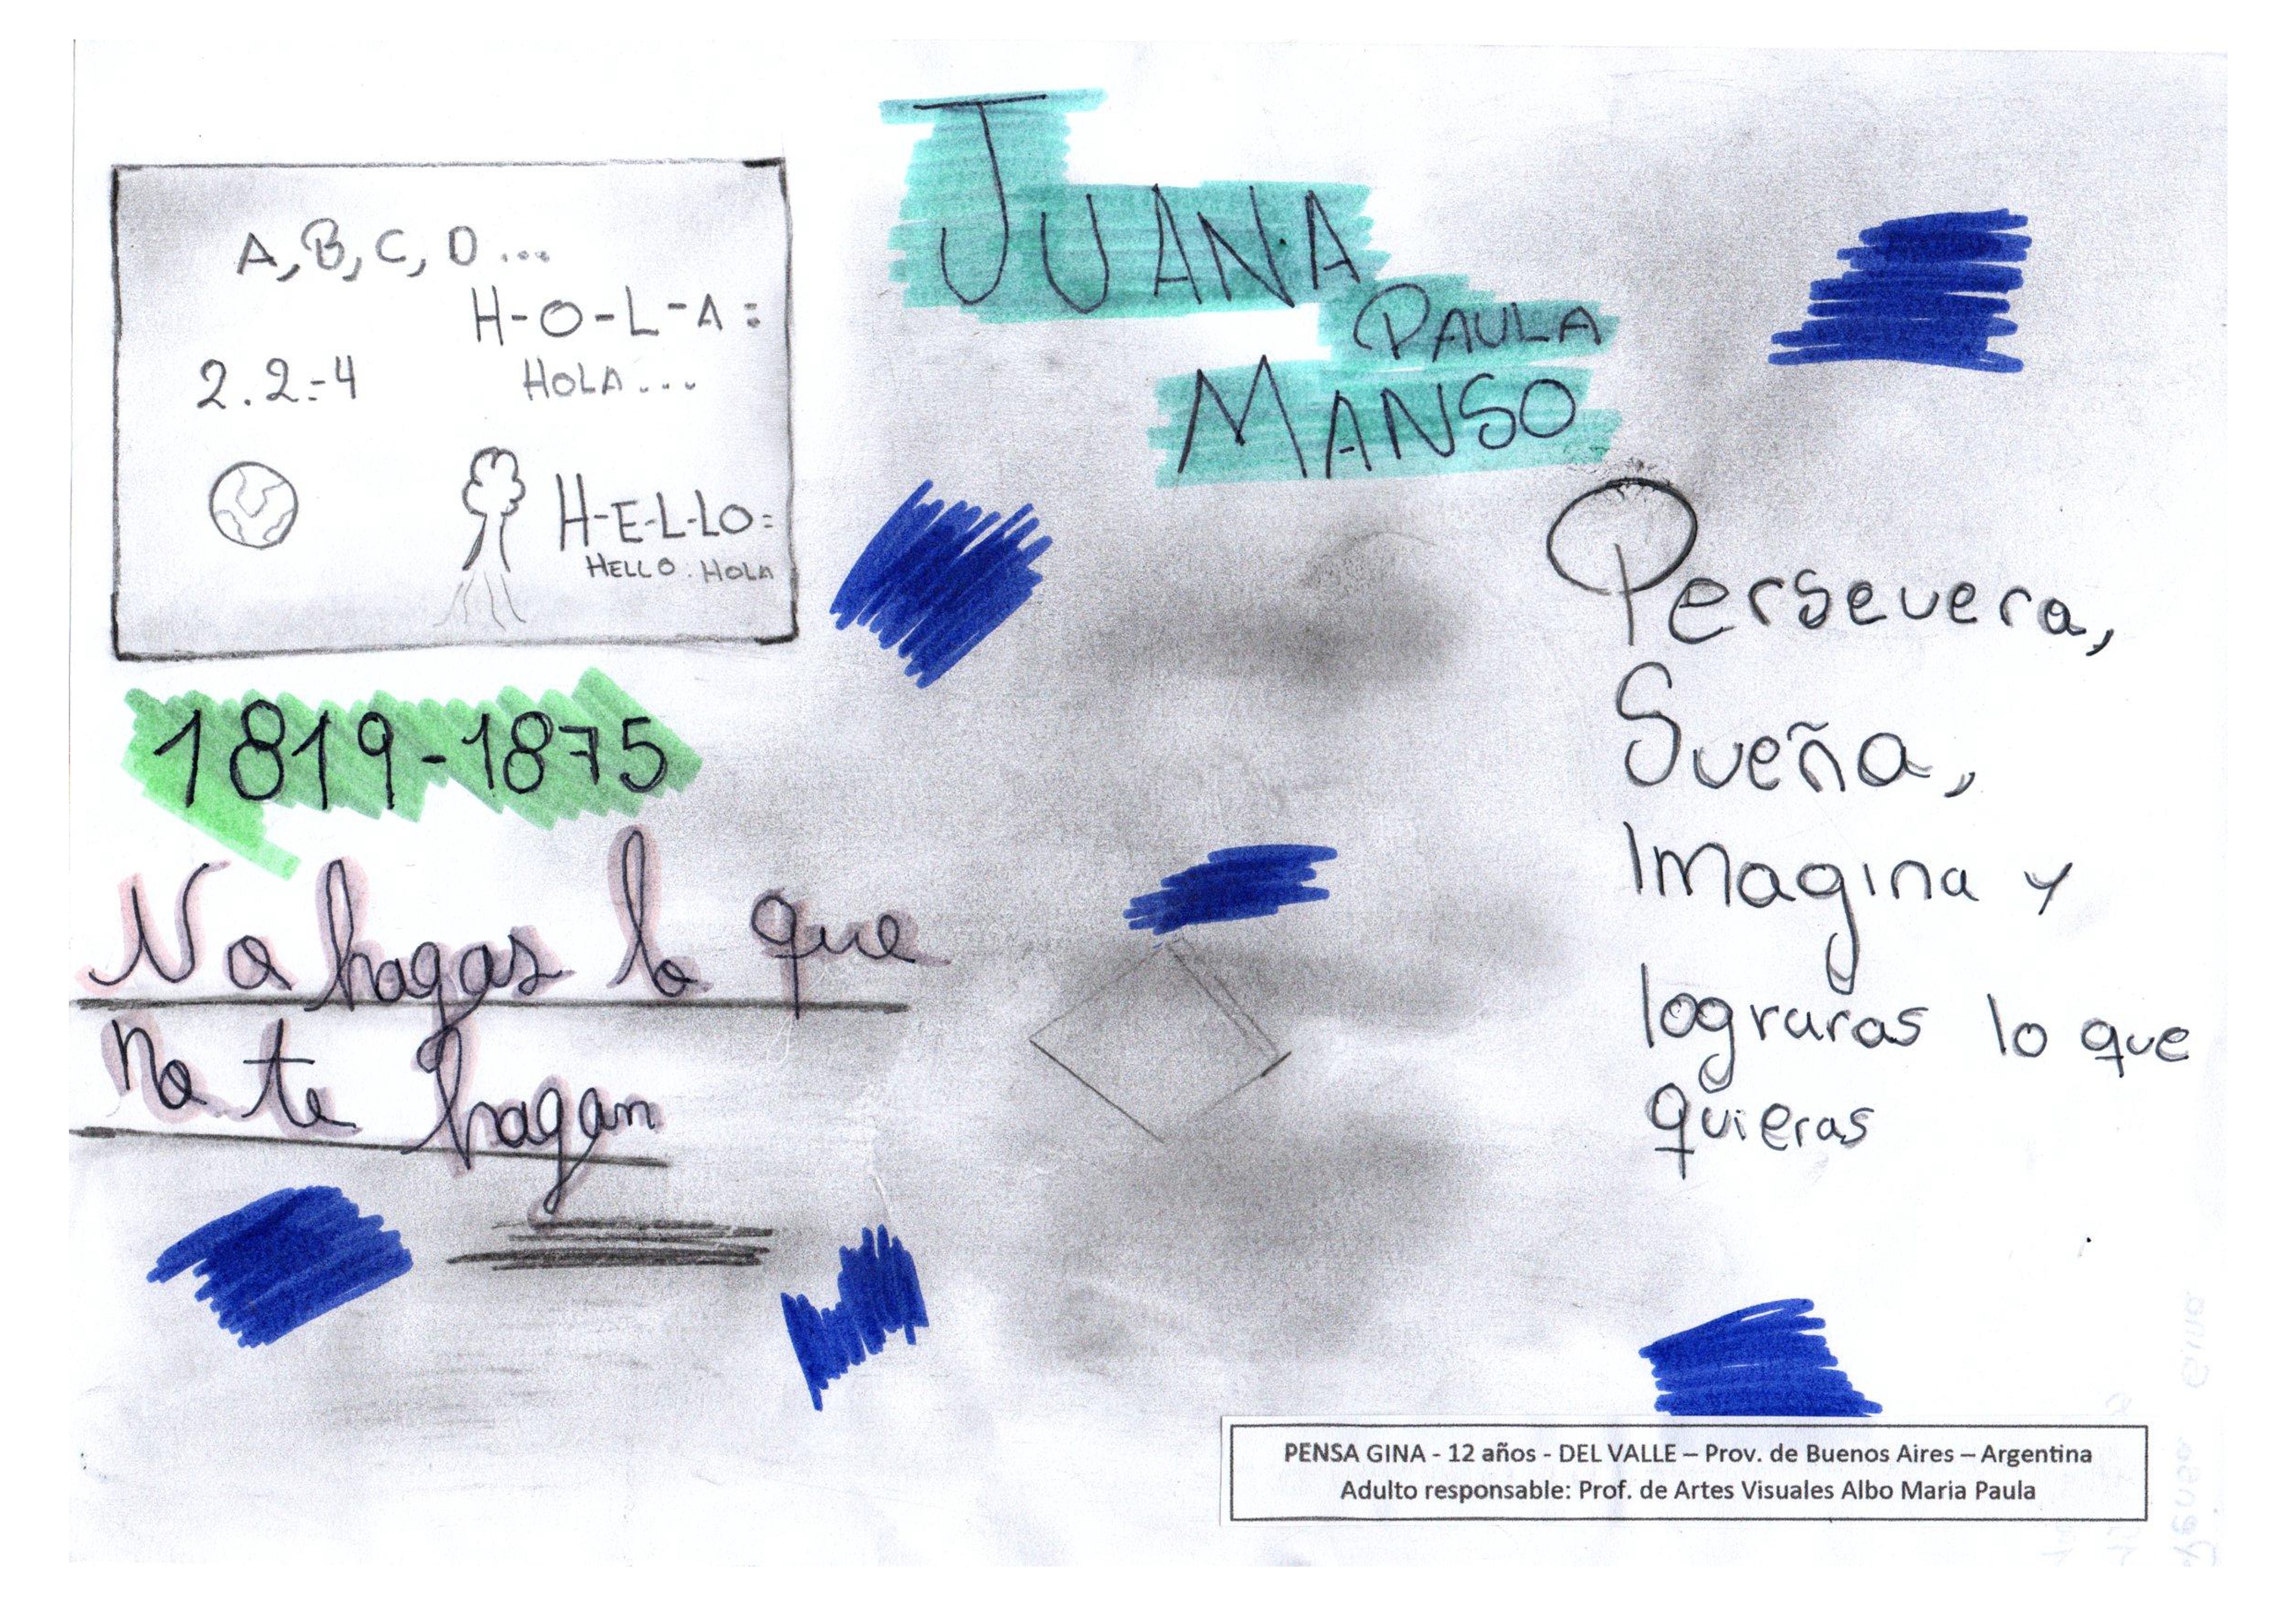 JUANA
PAULA
MANSO
A, B, C, D ...
H-O-L-A =
HOLA ...
2.2=4
H-E-L-LO=
HELLO. HOLA
1819-1875
No hagas lo que
no te hagan
Persevera,
Sueña,
Imagina y
lograras lo que
quieras
PENSA GINA - 12 años - DEL VALLE – Prov. de Buenos Aires – Argentina
Adulto responsable: Prof. de Artes Visuales Albo Maria Paula